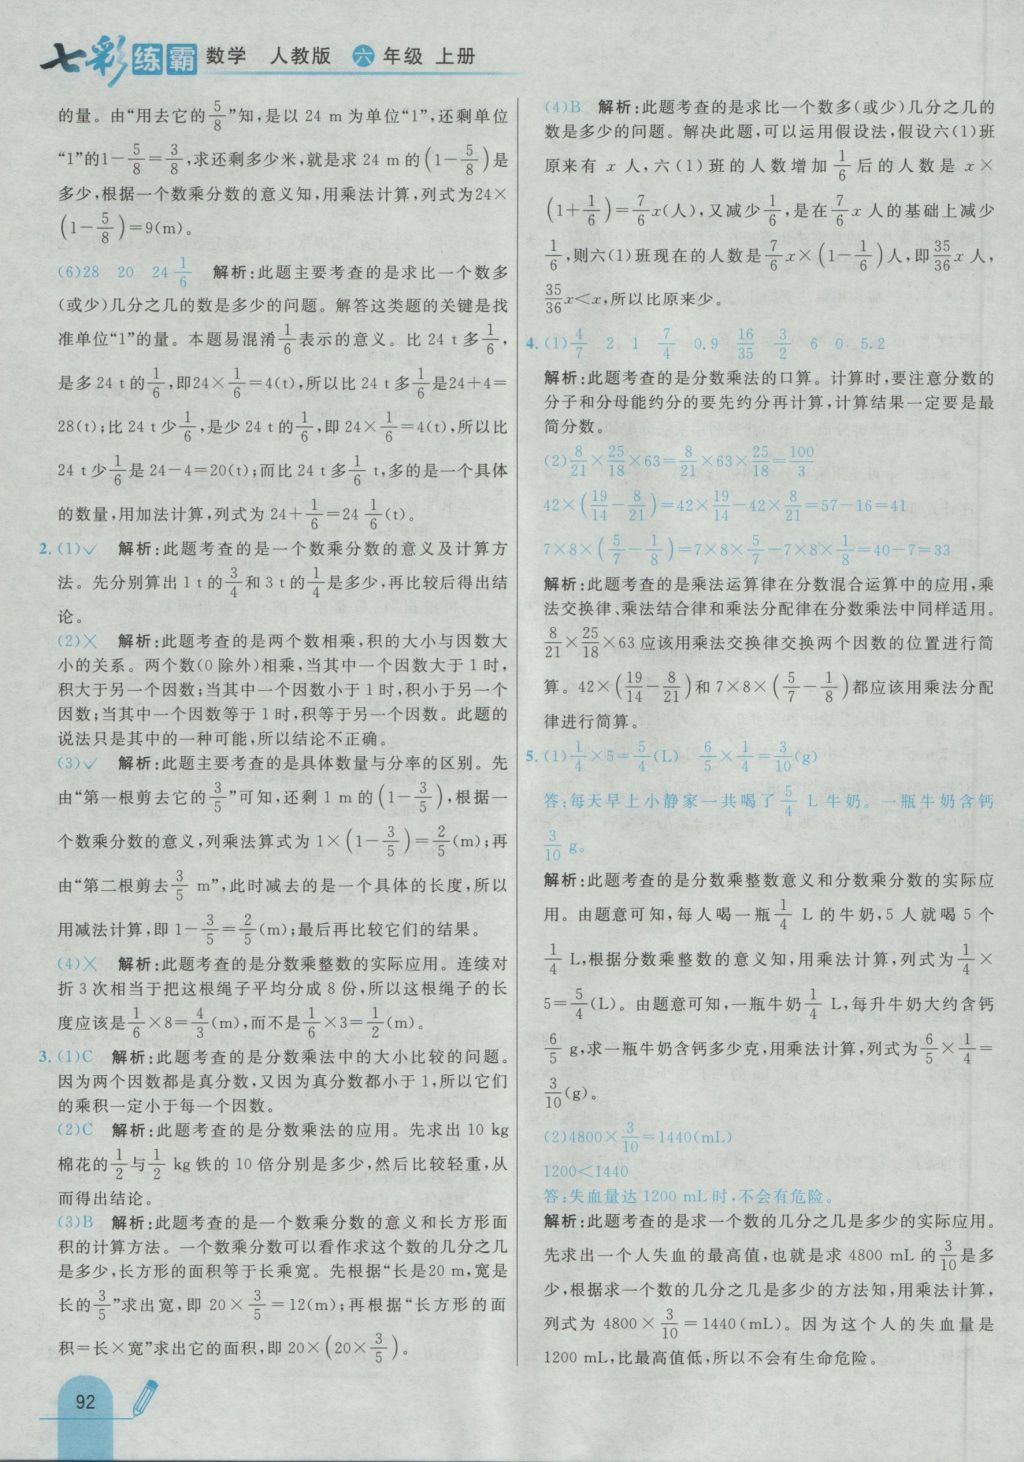 七彩练霸 数学 人教版 六年级 上册
的量。由“用去它的5/8”知,是以 24 m 为单位“1”,还剩单位
“1”的1-5/8=3/8,求还剩多少米,就是求 24 m 的(1-5/8)是
多少,根据一个数乘分数的意义知,用乘法计算,列式为24×
(1-5/8)=9(m)。
(6)28 20 24 1/6 解析:此题主要考查的是求比一个数多
(或少)几分之几的数是多少的问题。解答这类题的关键是找
准单位“1”的量。本题易混淆1/6表示的意义。比 24 t 多1/6,
是多 24 t 的1/6,即24×1/6=4(t),所以比 24 t 多1/6是24+4=
28(t);比 24 t 少1/6,是少 24 t 的1/6,即 24×1/6=4(t),所以比
24 t 少1/6是 24-4=20(t);而比 24 t 多1/6 t,多的是一个具体
的数量,用加法计算,列式为 24+1/6=24 1/6(t)。
2. (1)✓ 解析:此题考查的是一个数乘分数的意义及计算方
法。先分别算出 1 t 的3/4和 3 t 的1/4是多少,再比较后得出结
论。
(2)× 解析:此题考查的是两个数相乘,积的大小与因数大
小的关系。两个数(0 除外)相乘,当其中一个因数大于 1 时,
积大于另一个因数;当其中一个因数小于 1 时,积小于另一个
因数;当其中一个因数等于 1 时,积等于另一个因数。此题的
说法只是其中的一种可能,所以结论不正确。
(3)✓ 解析:此题主要考查的是具体数量与分率的区别。先
由“第一根剪去它的3/5”可知,还剩 1 m 的(1-3/5),根据一
个数乘分数的意义,列乘法算式为 1×(1-3/5)=2/5(m);再
由“第二根剪去3/5 m”,此时减去的是一个具体的长度,所以
用减法计算,即 1-3/5=2/5(m);最后再比较它们的结果。
(4)× 解析:此题考查的是分数乘整数的实际应用。连续对
折 3 次相当于把这根绳子平均分成 8 份,所以这根绳子的长
度应该是1/6×8=4/3(m),而不是1/6×3=1/2(m)。
3. (1)C 解析:此题考查的是分数乘法中的大小比较的问题。
因为两个因数都是真分数,又因为真分数都小于 1,所以它们
的乘积一定小于每一个因数。
(2)C 解析:此题考查的是分数乘法的应用。先求出 10 kg
棉花的1/2与1/2 kg 铁的 10 倍分别是多少,然后比较轻重,从
而得出结论。
(3)B 解析:此题考查的是一个数乘分数的意义和长方形面
积的计算方法。一个数乘分数可以看作求这个数的几分之几
是多少,长方形的面积等于长乘宽。先根据“长是20 m,宽是
长的3/5”求出宽,即 20×3/5=12(m);再根据“长方形的面
积=长×宽”求出它的面积,即 20×(20×3/5)。
(4)B 解析:此题考查的是求比一个数多(或少)几分之几的
数是多少的问题。解决此题,可以运用假设法,假设六(1)班
原来有 x 人,六(1)班的人数增加1/6后的人数是 x×
(1+1/6)=7/6x(人),又减少1/6,是在7/6x 人的基础上减少
1/6,则六(1)班现在的人数是7/6x×(1-1/6)人,即35/36x 人,
35/36x<x,所以比原来少。
4. (1)4/7 2 1 7/4 0.9 16/35 3/2 6 0 5.2
解析:此题考查的是分数乘法的口算。计算时,要注意分数的
分子和分母能约分的要先约分再计算,计算结果一定要是最
简分数。
(2)8/21×25/18×63=8/21×63×25/18=100/3
42×(19/14-8/21)=42×19/14-42×8/21=57-16=41
7×8×(5/7-1/8)=7×8×5/7-7×8×1/8=40-7=33
解析:此题考查的是乘法运算律在分数混合运算中的应用,乘
法交换律、乘法结合律和乘法分配律在分数乘法中同样适用。
8/21×25/18×63 应该用乘法交换律交换两个因数的位置进行简
算。42×(19/14-8/21)和 7×8×(5/7-1/8)都应该用乘法分配
律进行简算。
5. (1)1/4×5=5/4(L) 6/5×1/4=3/10(g)
答:每天早上小静家一共喝了5/4 L 牛奶。一瓶牛奶含钙
3/10 g。
解析:此题考查的是分数乘整数意义和分数乘分数的实际应
用。由题意可知,每人喝一瓶1/4 L 的牛奶,5 人就喝 5 个
1/4 L,根据分数乘整数的意义知,用乘法计算,列式为1/4×
5=5/4(L)。由题意可知,一瓶牛奶1/4 L,每升牛奶大约含钙
6/5 g,求一瓶牛奶含钙多少克,用乘法计算,列式为6/5×1/4=
3/10(g)。
(2)4800×3/10=1440(mL)
1200<1440
答:失血量达 1200 mL 时,不会有危险。
解析:此题考查的是求一个数的几分之几是多少的实际应用。
先求出一个人失血的最高值,也就是求 4800 mL 的3/10是多
少,根据求一个数的几分之几是多少的方法知,用乘法计算,
列式为 4800×3/10=1440(mL)。因为这个人的失血量是
1200 mL,比最高值低,所以不会有生命危险。
92